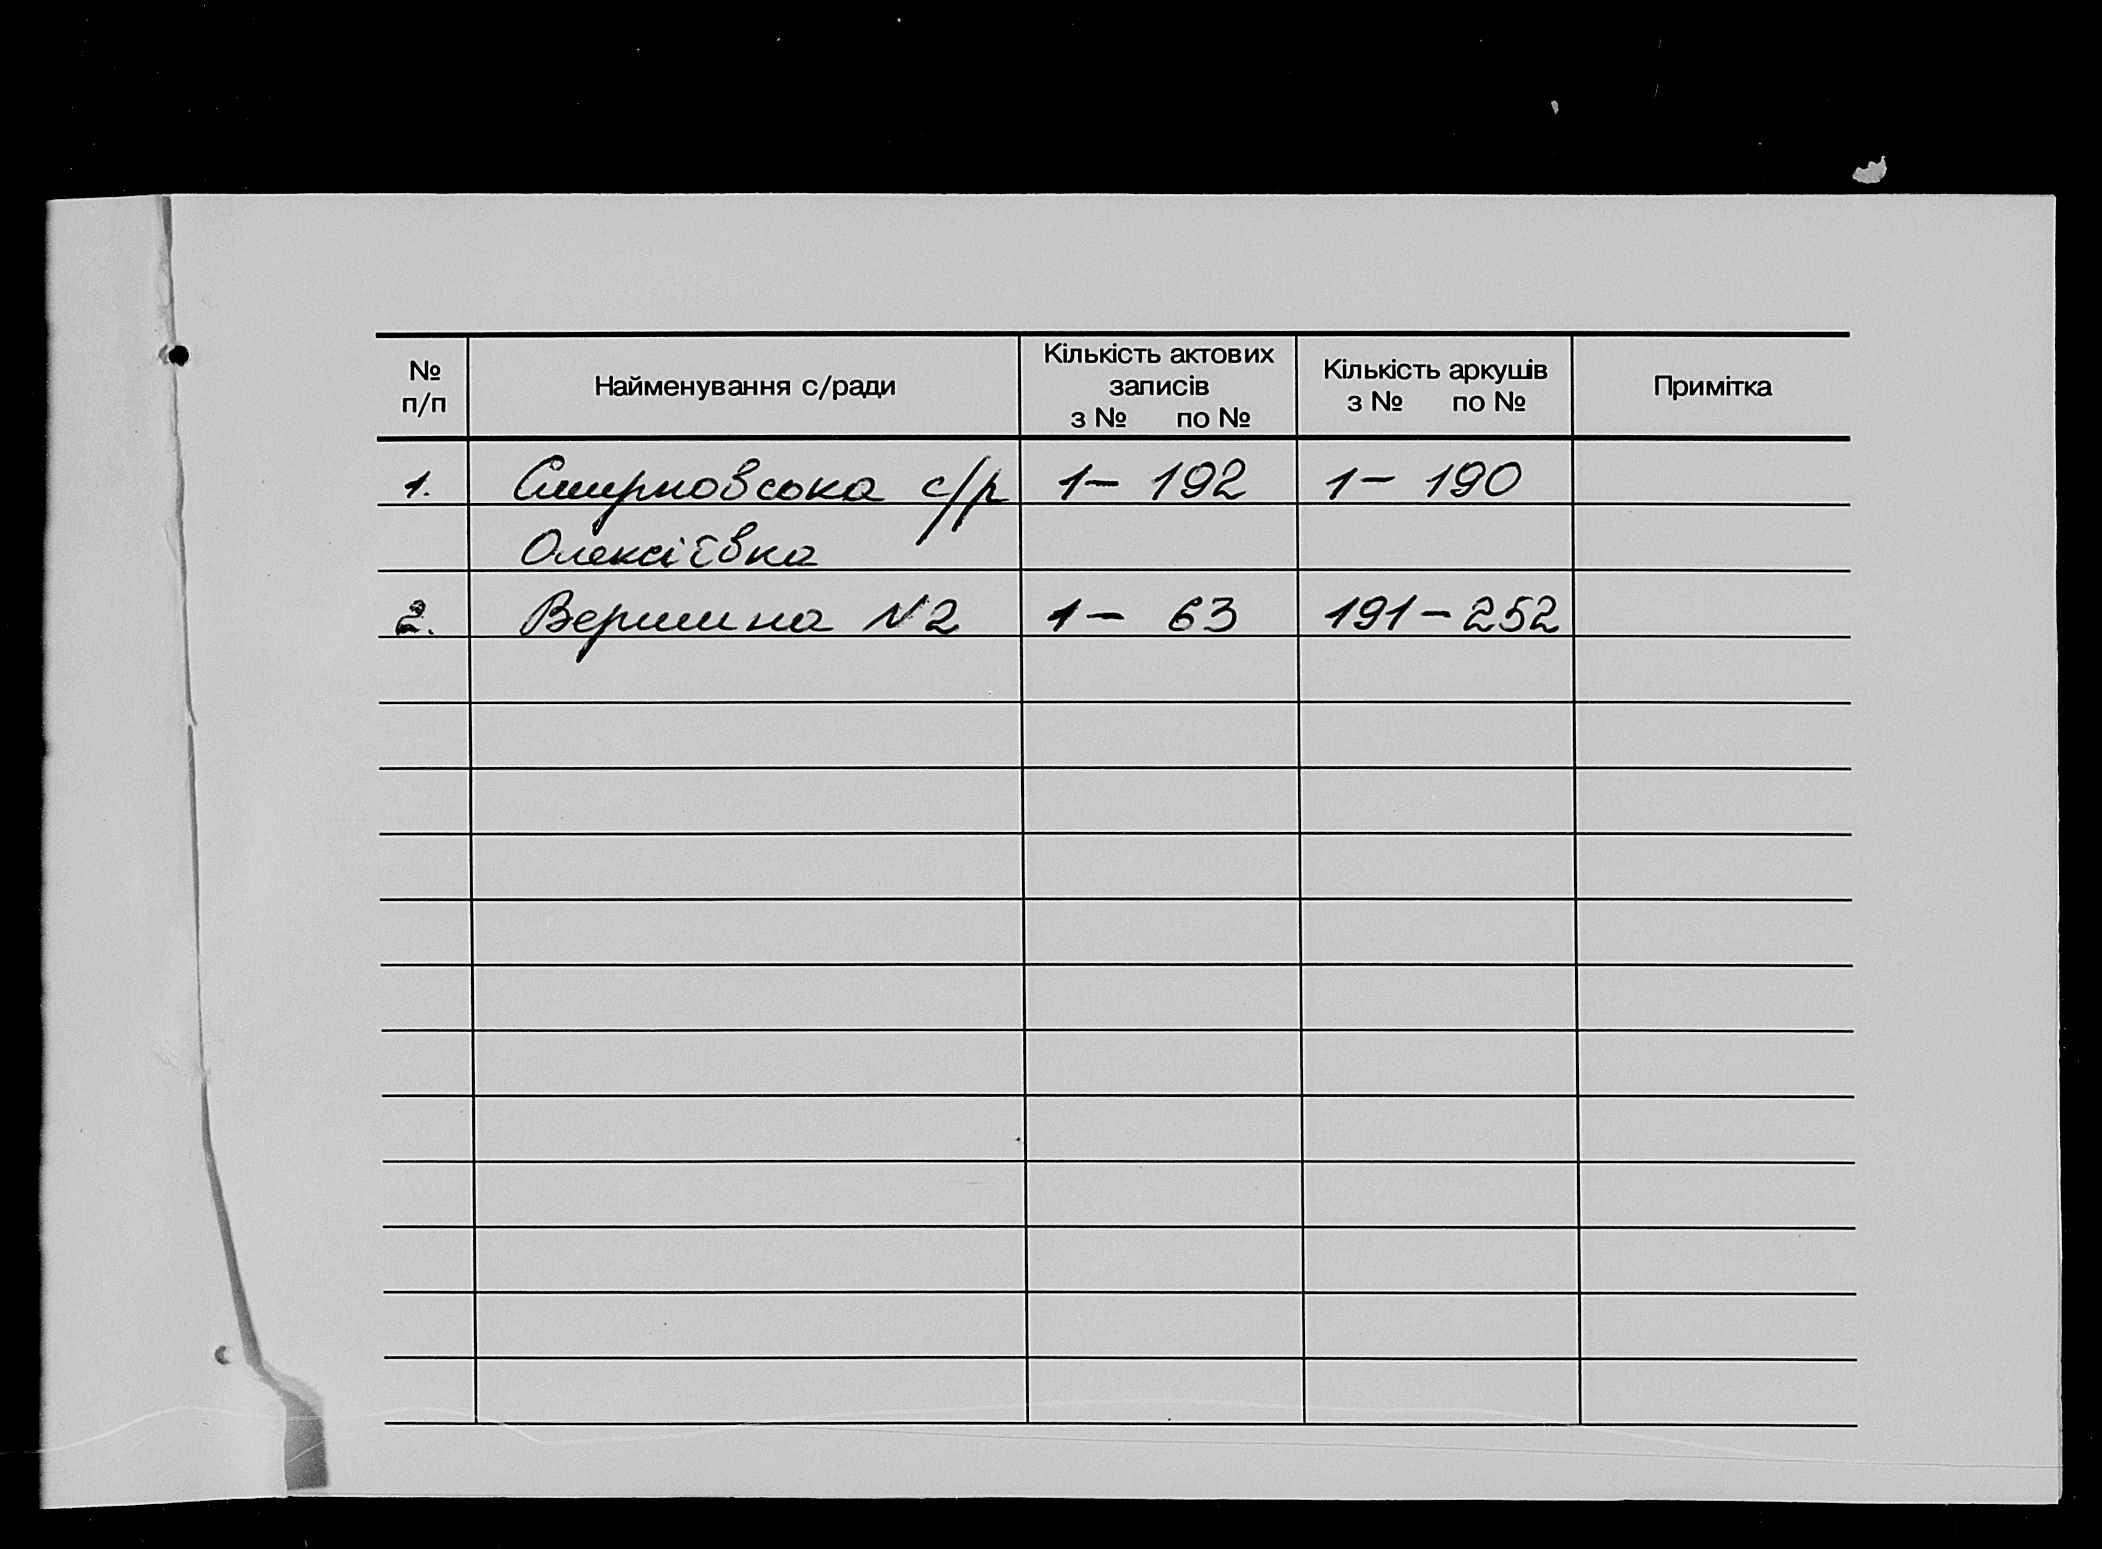 № п/п Найменування с/ради Кількість актових записів з № по № Кількість аркушів з № по № Примітка
1. Смирновська с/р 1 – 192 1 – 190
Олексіївка
2. Вершина N2 1 – 63 191 – 252